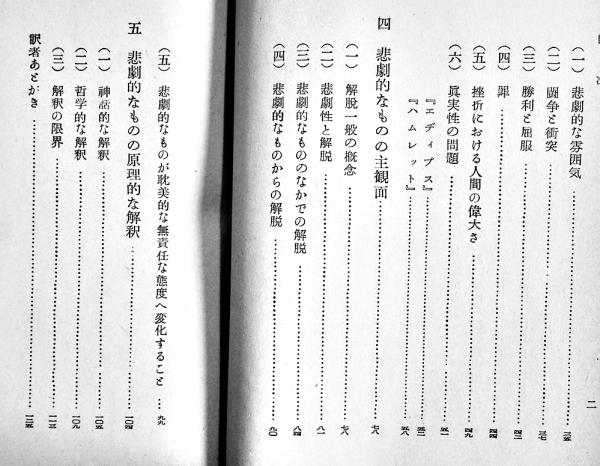 目次
二
（一） 悲劇的な雰囲気……三五
（二） 闘争と衝突……三七
（三） 勝利と屈服……四三
（四） 罪……四四
（五） 挫折における人間の偉大さ……四九
（六） 真実性の問題……五一
『エディプス』……五三
『ハムレット』……五八
四 悲劇的なものの主観面……七八
（一） 解脱一般の概念……七八
（二） 悲劇性と解脱……八一
（三） 悲劇的なもののなかでの解脱……八四
（四） 悲劇的なものからの解脱……九〇
（五） 悲劇的なものが耽美的な無責任な態度へ変化すること…九九
五 悲劇的なものの原理的な解釈……一〇四
（一） 神話的な解釈……一〇五
（二） 哲学的な解釈……一〇九
（三） 解釈の限界……一一三
訳者あとがき……一二五